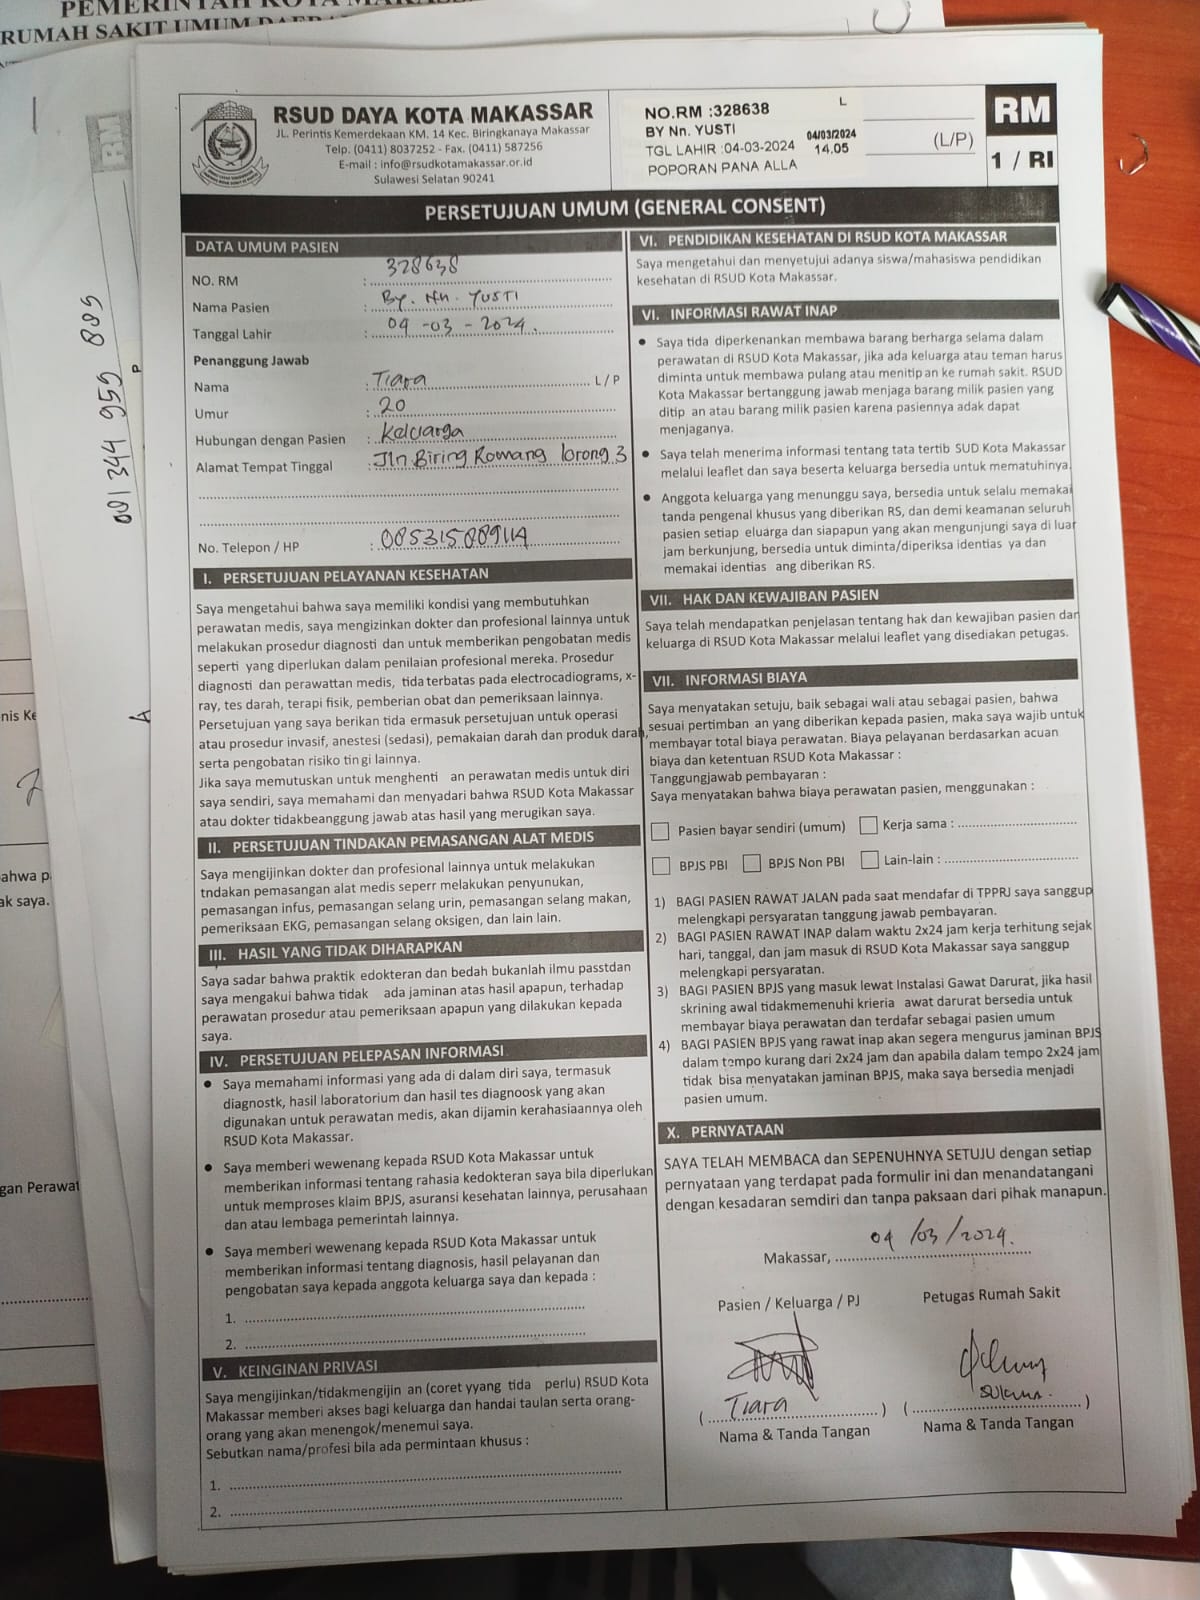 PEMERINTAH KOTA MAKAS
RUMAH SAKIT UMUM DAERA
RSUD DAYA KOTA MAKASSAR
JL. Perintis Kemerdekaan KM. 14 Kec. Biringkanaya Makassar
Telp. (0411) 8037252 - Fax. (0411) 587256
E-mail : info@rsudkotamakassar.or.id
Sulawesi Selatan 90241
NO.RM :328638 L
BY Nn. YUSTI
TGL LAHIR :04-03-2024
POPORAN PANA ALLA
04/03/2024
14.05
(L/P)
RM
1 / RI
PERSETUJUAN UMUM (GENERAL CONSENT)
DATA UMUM PASIEN
NO. RM : 328638
Nama Pasien : By. Nn. YUSTI
Tanggal Lahir : 04-03-2024.
Penanggung Jawab
Nama : Tiara L / P
Umur : 20
Hubungan dengan Pasien : Keluarga
Alamat Tempat Tinggal : Jln Biring Romang lorong 3
No. Telepon / HP :
I. PERSETUJUAN PELAYANAN KESEHATAN
Saya mengetahui bahwa saya memiliki kondisi yang membutuhkan
perawatan medis, saya mengizinkan dokter dan profesional lainnya untuk
melakukan prosedur diagnosti dan untuk memberikan pengobatan medis
seperti yang diperlukan dalam penilaian profesional mereka. Prosedur
diagnosti dan perawattan medis, tida terbatas pada electrocadiograms, x-
ray, tes darah, terapi fisik, pemberian obat dan pemeriksaan lainnya.
Persetujuan yang saya berikan tida ermasuk persetujuan untuk operasi
atau prosedur invasif, anestesi (sedasi), pemakaian darah dan produk darah,
serta pengobatan risiko tin gi lainnya.
Jika saya memutuskan untuk menghenti an perawatan medis untuk diri
saya sendiri, saya memahami dan menyadari bahwa RSUD Kota Makassar
atau dokter tidakbeanggung jawab atas hasil yang merugikan saya.
II. PERSETUJUAN TINDAKAN PEMASANGAN ALAT MEDIS
Saya mengijinkan dokter dan profesional lainnya untuk melakukan
tndakan pemasangan alat medis seperr melakukan penyunukan,
pemasangan infus, pemasangan selang urin, pemasangan selang makan,
pemeriksaan EKG, pemasangan selang oksigen, dan lain lain.
III. HASIL YANG TIDAK DIHARAPKAN
Saya sadar bahwa praktik edokteran dan bedah bukanlah ilmu passtdan
saya mengakui bahwa tidak ada jaminan atas hasil apapun, terhadap
perawatan prosedur atau pemeriksaan apapun yang dilakukan kepada
saya.
IV. PERSETUJUAN PELEPASAN INFORMASI
● Saya memahami informasi yang ada di dalam diri saya, termasuk
diagnostk, hasil laboratorium dan hasil tes diagnoosk yang akan
digunakan untuk perawatan medis, akan dijamin kerahasiaannya oleh
RSUD Kota Makassar.
● Saya memberi wewenang kepada RSUD Kota Makassar untuk
memberikan informasi tentang rahasia kedokteran saya bila diperlukan
untuk memproses klaim BPJS, asuransi kesehatan lainnya, perusahaan
dan atau lembaga pemerintah lainnya.
● Saya memberi wewenang kepada RSUD Kota Makassar untuk
memberikan informasi tentang diagnosis, hasil pelayanan dan
pengobatan saya kepada anggota keluarga saya dan kepada :
1.
2.
V. KEINGINAN PRIVASI
Saya mengijinkan/tidakmengijin an (coret yyang tida perlu) RSUD Kota
Makassar memberi akses bagi keluarga dan handai taulan serta orang-
orang yang akan menengok/menemui saya.
Sebutkan nama/profesi bila ada permintaan khusus :
1.
2.
VI. PENDIDIKAN KESEHATAN DI RSUD KOTA MAKASSAR
Saya mengetahui dan menyetujui adanya siswa/mahasiswa pendidikan
kesehatan di RSUD Kota Makassar.
VI. INFORMASI RAWAT INAP
● Saya tida diperkenankan membawa barang berharga selama dalam
perawatan di RSUD Kota Makassar, jika ada keluarga atau teman harus
diminta untuk membawa pulang atau menitip an ke rumah sakit. RSUD
Kota Makassar bertanggung jawab menjaga barang milik pasien yang
ditip an atau barang milik pasien karena pasiennya adak dapat
menjaganya.
● Saya telah menerima informasi tentang tata tertib SUD Kota Makassar
melalui leaflet dan saya beserta keluarga bersedia untuk mematuhinya.
● Anggota keluarga yang menunggu saya, bersedia untuk selalu memakai
tanda pengenal khusus yang diberikan RS, dan demi keamanan seluruh
pasien setiap eluarga dan siapapun yang akan mengunjungi saya di luar
jam berkunjung, bersedia untuk diminta/diperiksa identias ya dan
memakai identias ang diberikan RS.
VII. HAK DAN KEWAJIBAN PASIEN
Saya telah mendapatkan penjelasan tentang hak dan kewajiban pasien dan
keluarga di RSUD Kota Makassar melalui leaflet yang disediakan petugas.
VII. INFORMASI BIAYA
Saya menyatakan setuju, baik sebagai wali atau sebagai pasien, bahwa
sesuai pertimban an yang diberikan kepada pasien, maka saya wajib untuk
membayar total biaya perawatan. Biaya pelayanan berdasarkan acuan
biaya dan ketentuan RSUD Kota Makassar :
Tanggungjawab pembayaran :
Saya menyatakan bahwa biaya perawatan pasien, menggunakan :
Pasien bayar sendiri (umum) Kerja sama :
BPJS PBI BPJS Non PBI Lain-lain :
1) BAGI PASIEN RAWAT JALAN pada saat mendafar di TPPRJ saya sanggup
melengkapi persyaratan tanggung jawab pembayaran.
2) BAGI PASIEN RAWAT INAP dalam waktu 2x24 jam kerja terhitung sejak
hari, tanggal, dan jam masuk di RSUD Kota Makassar saya sanggup
melengkapi persyaratan.
3) BAGI PASIEN BPJS yang masuk lewat Instalasi Gawat Darurat, jika hasil
skrining awal tidakmemenuhi krieria awat darurat bersedia untuk
membayar biaya perawatan dan terdafar sebagai pasien umum
4) BAGI PASIEN BPJS yang rawat inap akan segera mengurus jaminan BPJS
dalam tempo kurang dari 2x24 jam dan apabila dalam tempo 2x24 jam
tidak bisa menyatakan jaminan BPJS, maka saya bersedia menjadi
pasien umum.
X. PERNYATAAN
SAYA TELAH MEMBACA dan SEPENUHNYA SETUJU dengan setiap
pernyataan yang terdapat pada formulir ini dan menandatangani
dengan kesadaran semdiri dan tanpa paksaan dari pihak manapun.
Makassar, 04/03/2024.
Pasien / Keluarga / PJ Petugas Rumah Sakit
( Tiara ) ( )
Nama & Tanda Tangan Nama & Tanda Tangan
RM
nis Ke
ahwa p
ak saya.
gan Perawat